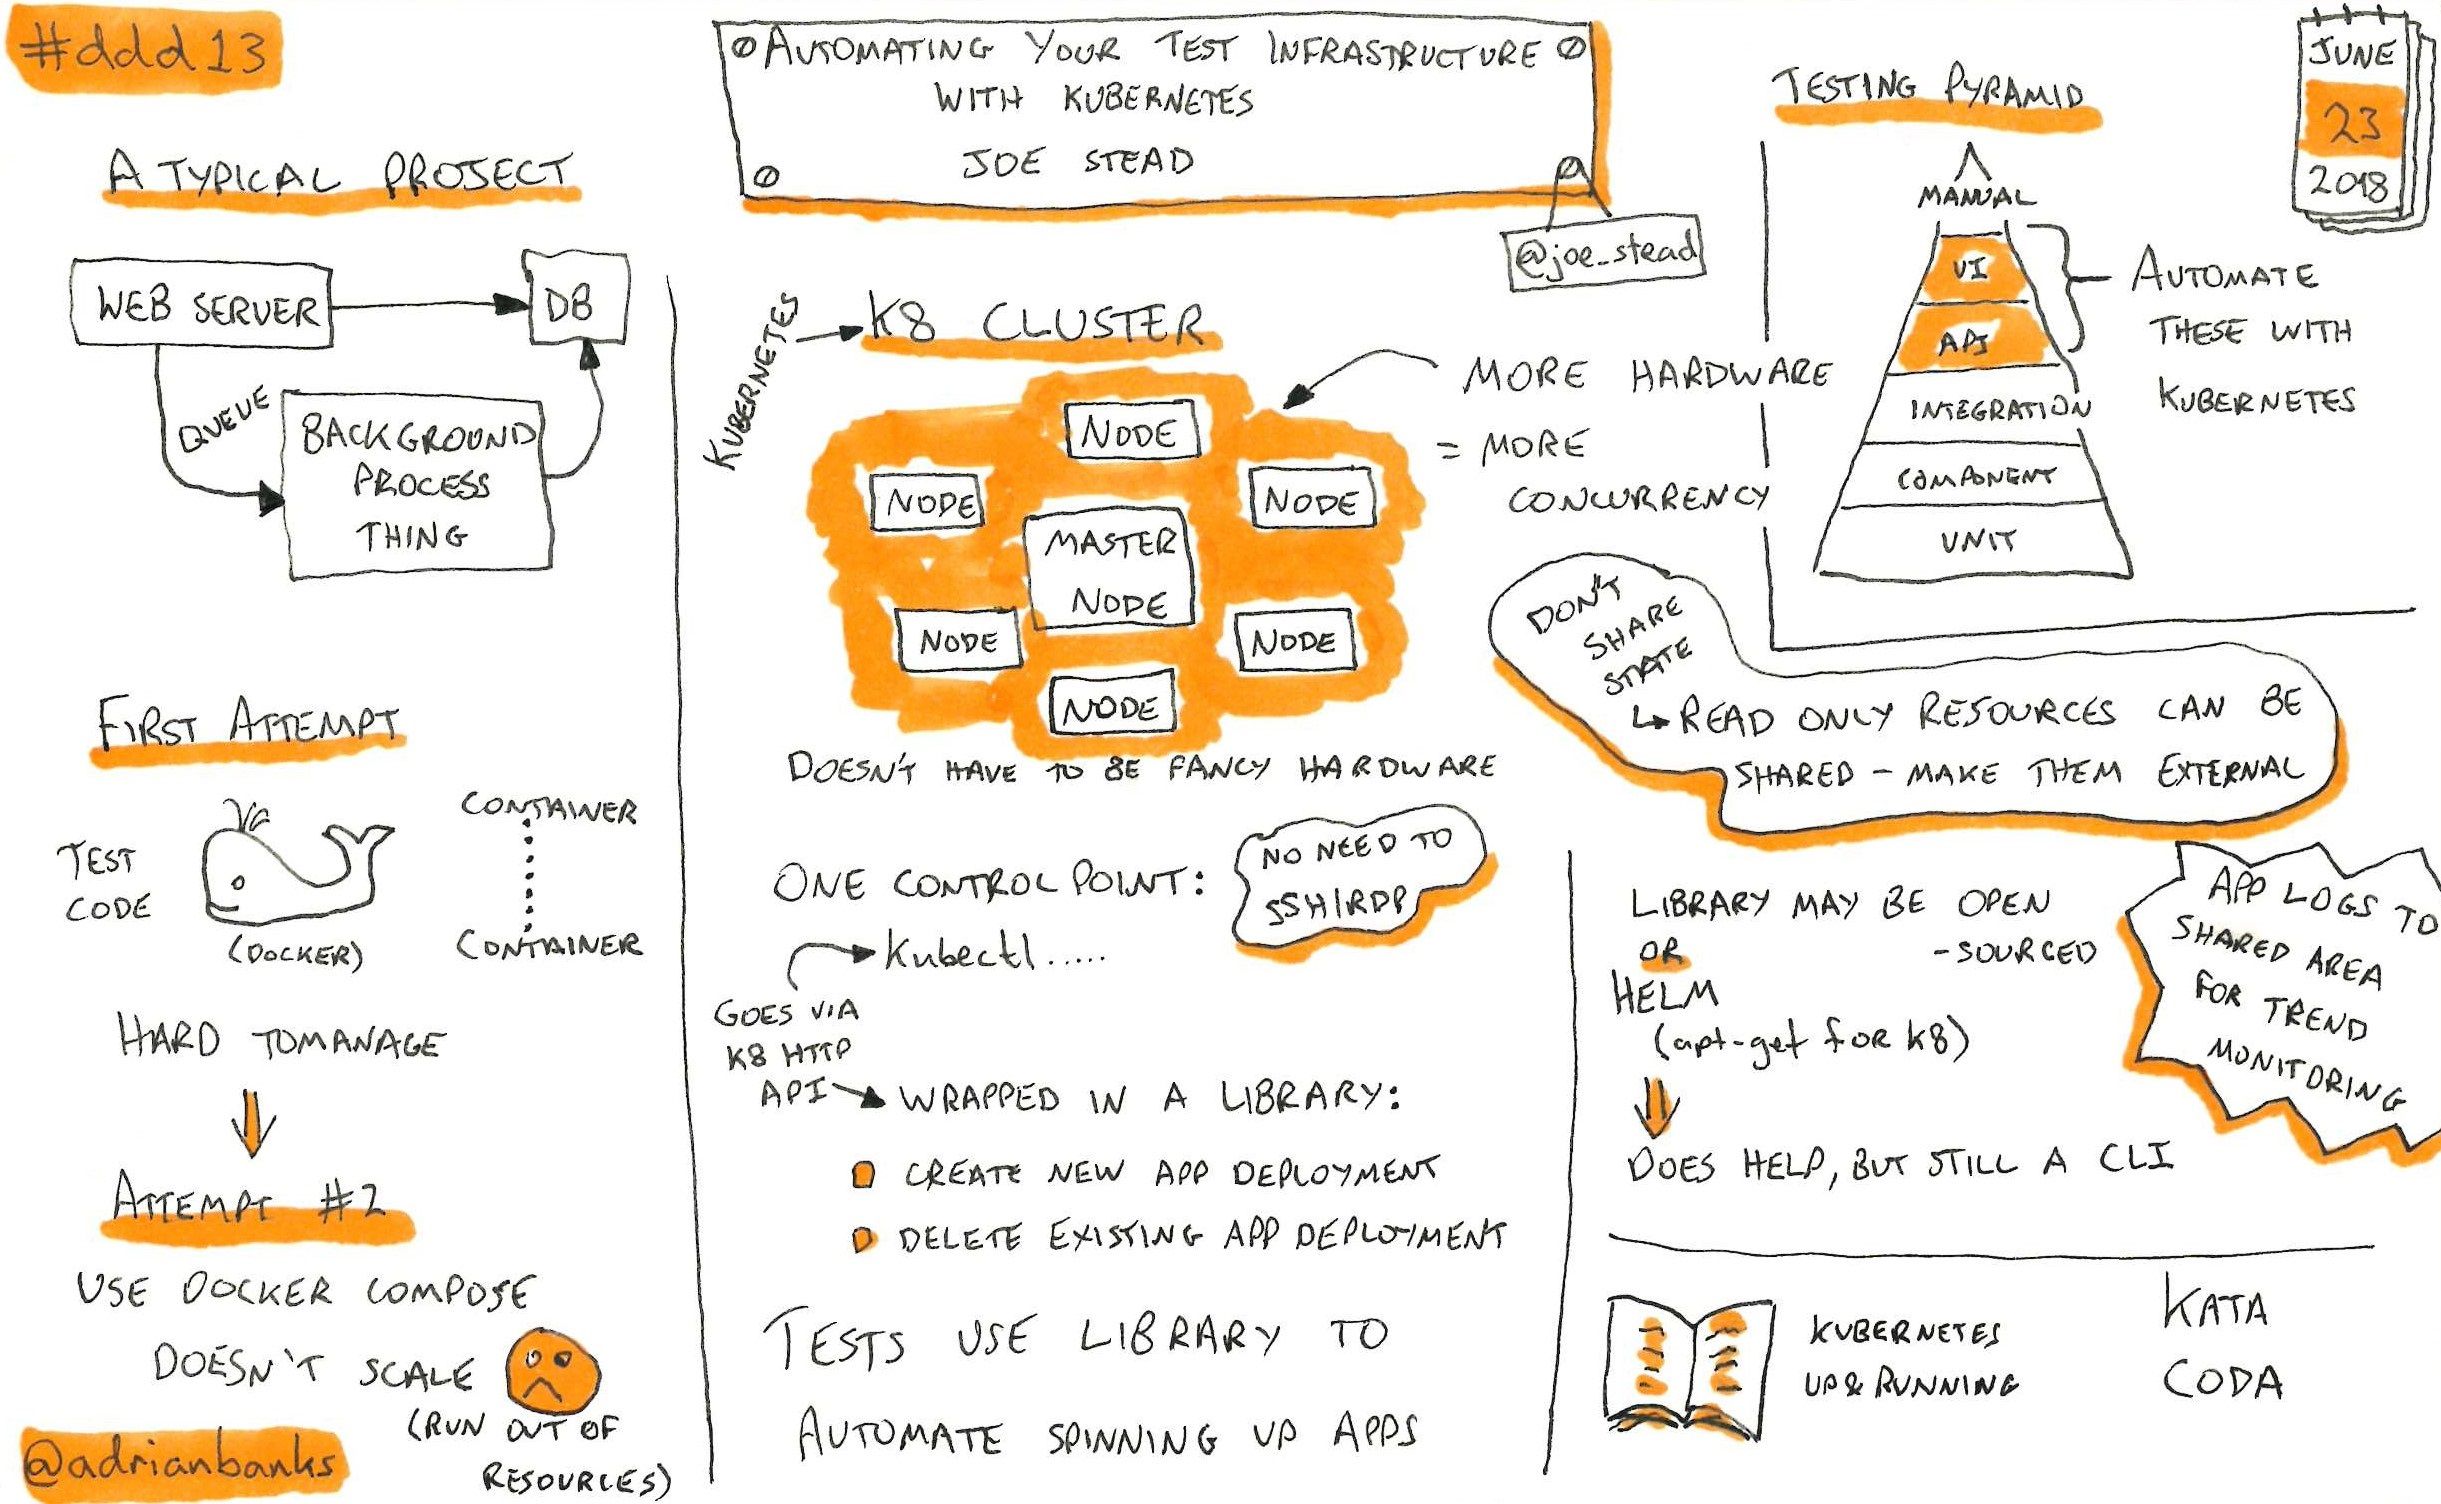 #ddd13
AUTOMATING YOUR TEST INFRASTRUCTURE
WITH KUBERNETES
JOE STEAD
@joe_stead
JUNE
23
2018
A TYPICAL PROJECT
WEB SERVER
DB
QUEUE
BACKGROUND
PROCESS
THING
FIRST ATTEMPT
TEST
CODE
(DOCKER)
CONTAINER
CONTAINER
HARD TO MANAGE
ATTEMPT #2
USE DOCKER COMPOSE
DOESN'T SCALE
(RUN OUT OF
RESOURCES)
@adrianbanks
KUBERNETES
K8 CLUSTER
NODE
NODE
NODE
MASTER
NODE
NODE
NODE
NODE
MORE HARDWARE
= MORE
CONCURRENCY
DOESN'T HAVE TO BE FANCY HARDWARE
ONE CONTROL POINT:
NO NEED TO
SSH/RDP
Kubectl.....
GOES VIA
K8 HTTP
API
WRAPPED IN A LIBRARY:
CREATE NEW APP DEPLOYMENT
DELETE EXISTING APP DEPLOYMENT
TESTS USE LIBRARY TO
AUTOMATE SPINNING UP APPS
TESTING PYRAMID
MANUAL
UI
API
INTEGRATION
COMPONENT
UNIT
AUTOMATE
THESE WITH
KUBERNETES
DON'T
SHARE
STATE
READ ONLY RESOURCES CAN BE
SHARED - MAKE THEM EXTERNAL
LIBRARY MAY BE OPEN
-SOURCED
OR
HELM
(apt-get for K8)
DOES HELP, BUT STILL A CLI
APP LOGS TO
SHARED AREA
FOR TREND
MONITORING
KUBERNETES
UP & RUNNING
KATA
CODA